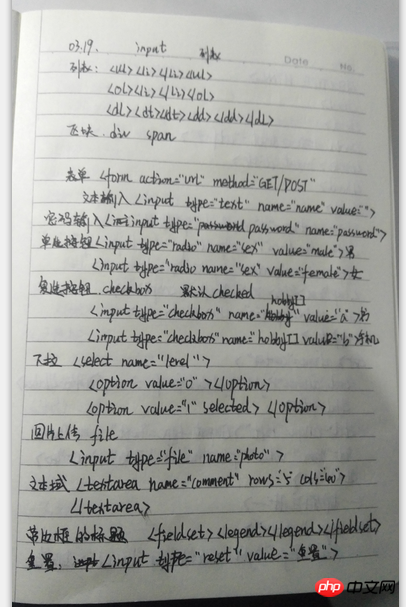 03.19. input 列表
Date No.
列表: <ul><li></li></ul>
<ol><li></li></ol>
<dl><dt></dt><dd></dd></dl>
区块. div span
表单 <form action="url" method="GET/POST"
文本输入<input type="text" name="name" value="">
密码输入<input type="password" name="password">
单选按钮<input type="radio" name="sex" value="male">男
<input type="radio name="sex" value="female">女
复选按钮. checkbox 默认checked
hobby[]
<input type="checkbox" name="hobby" value="a">
<input type="checkbox" name="hobby[] value="b">
下拉 <select name="level">
<option value="0"></option>
<option value="1" selected> </option>
图片上传 file
<input type="file" name="photo">
文本域 <textarea name="comment" rows= cols=
</textarea>
带边框的标题 <fieldset><legend></legend></fieldset>
重置. <input type="reset" value="重置">
php 中文网